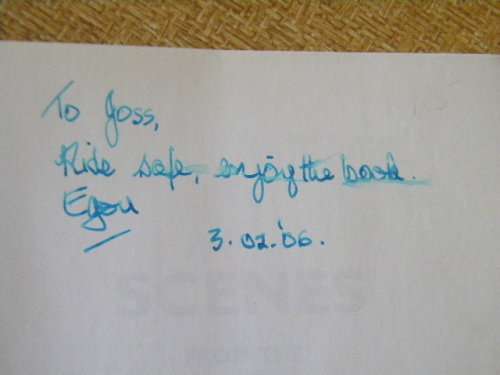 To Joss,
Ride safe, enjoy the book.
3.02.'06.
SCENES
FROM THE